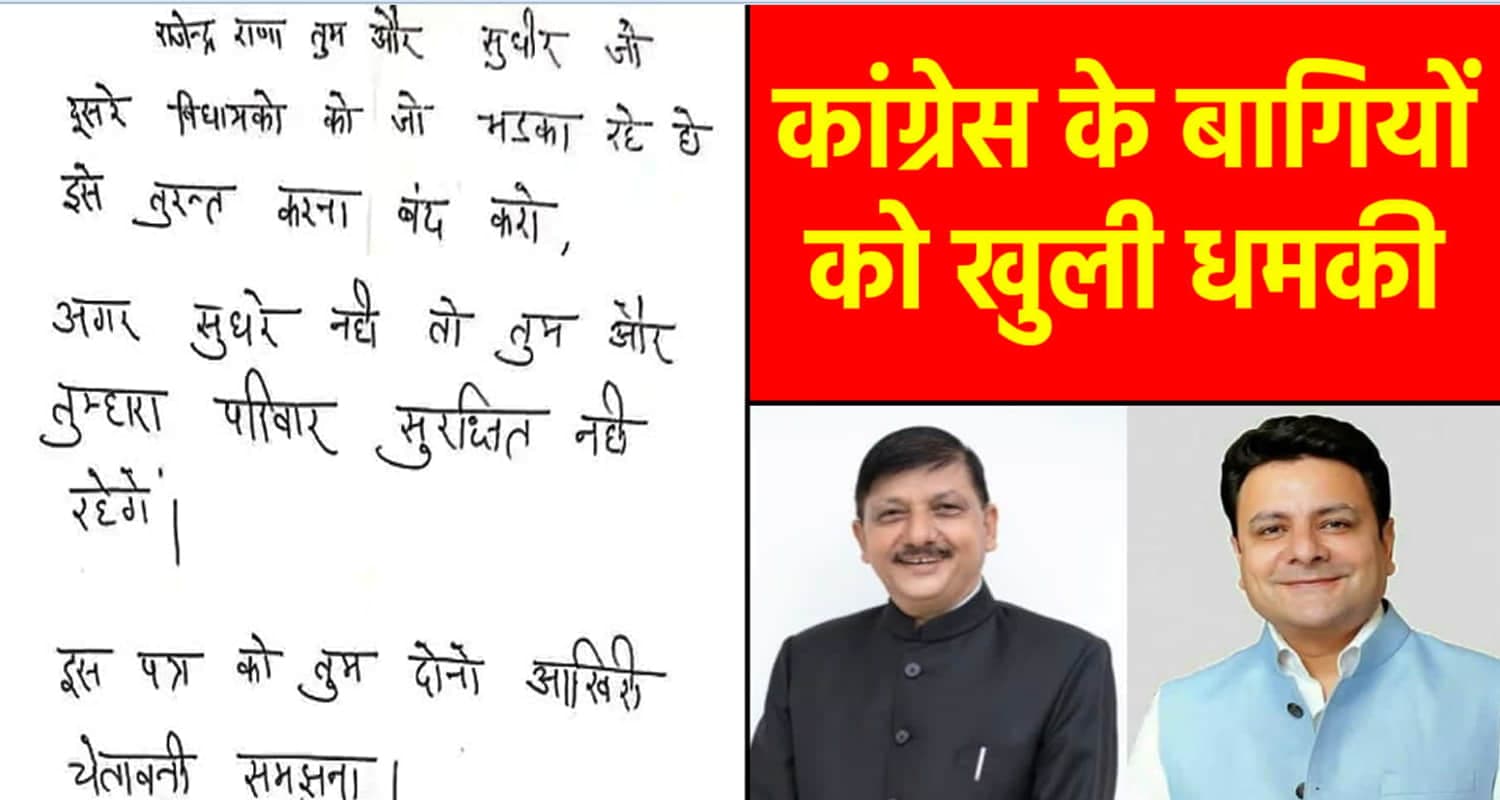 राजेन्द्र राणा तुम और सुधीर जो
दूसरे विधायको को जो भडका रहे हो
इसे तुरन्त करना बंद करो,
अगर सुधरे नही तो तुम और
तुम्हारा परिवार सुरक्षित नही
रहेगें।
इस पत्र को तुम दोनो आखिरी
चेतावनी समझना।
कांग्रेस के बागियों
को खुली धमकी